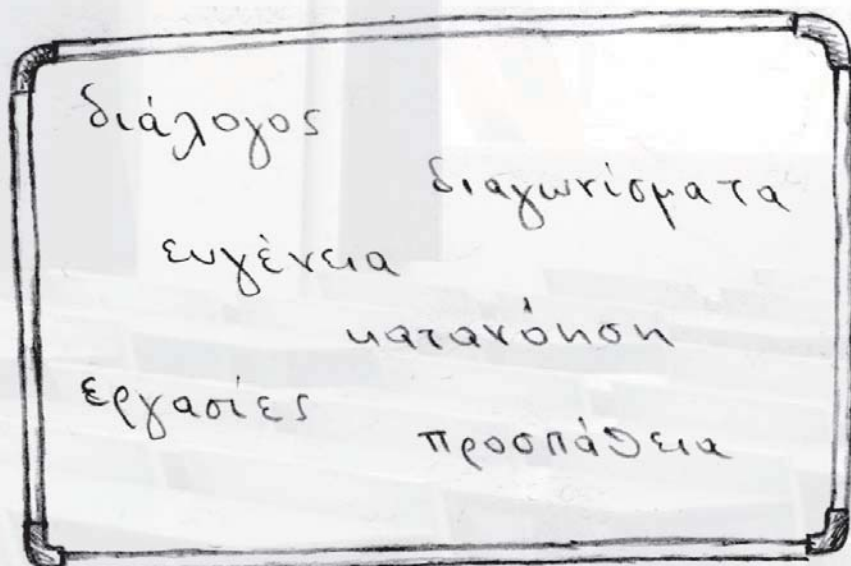 διάλογος
διαγωνίσματα
ευγένεια
κατανόηση
εργασίες
προσπάθεια